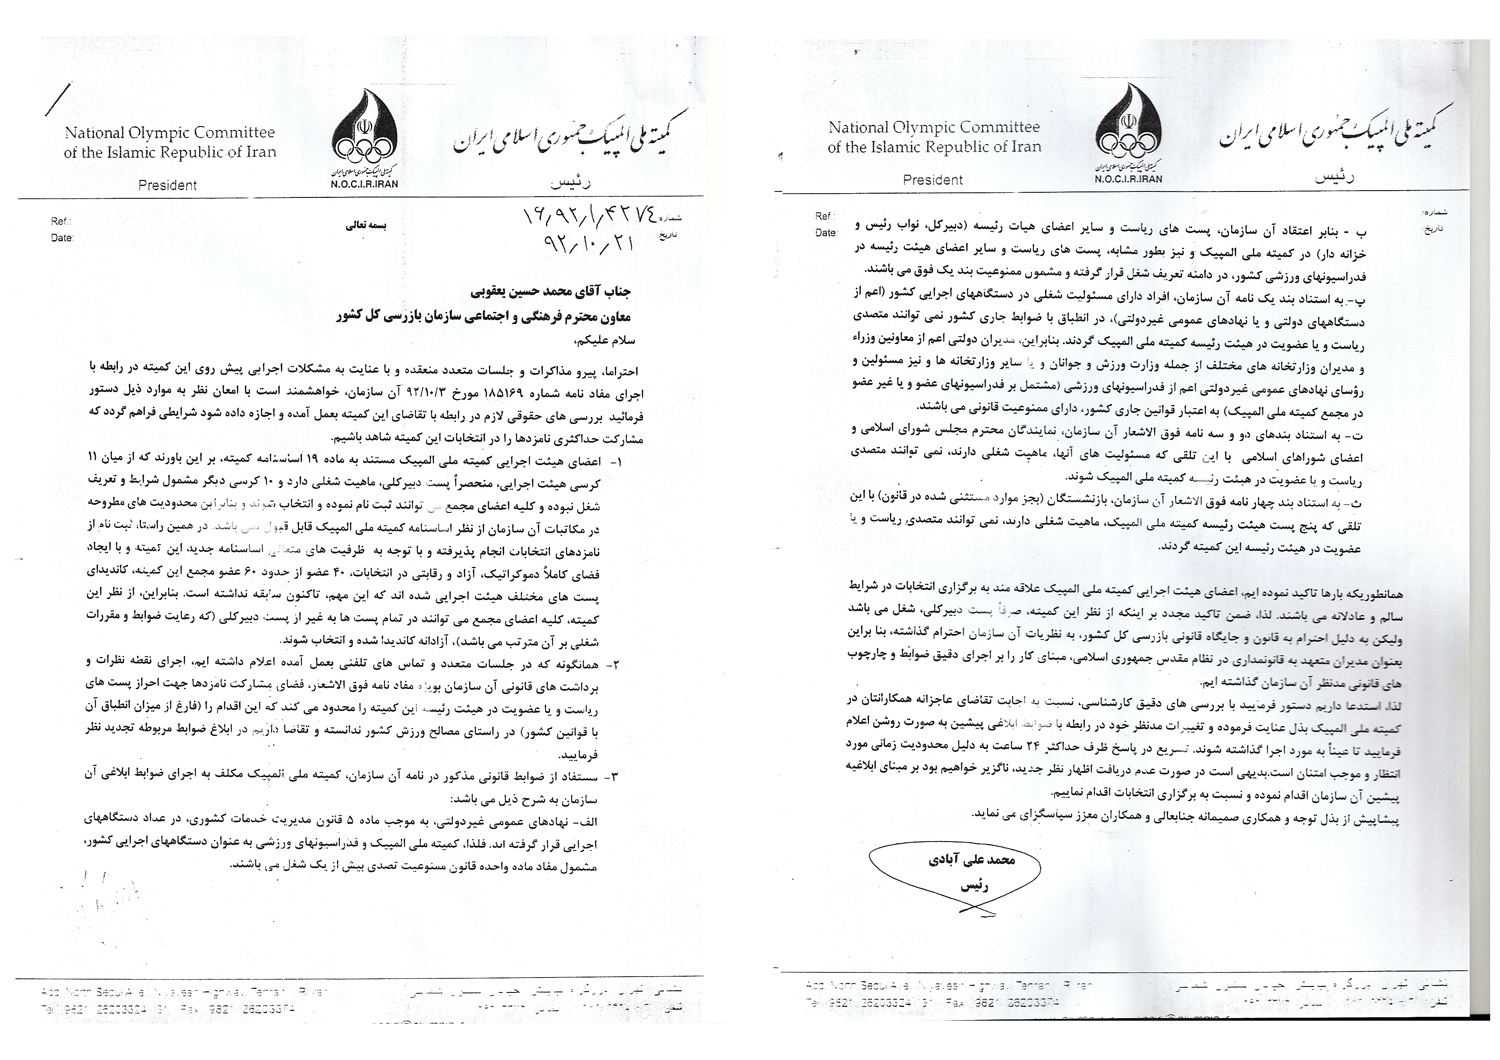 National Olympic Committee
of the Islamic Republic of Iran
President
کمیته ملی المپیک جمهوری اسلامی ایران
N.O.C.I.R.IRAN
کمیته ملی المپیک جمهوری اسلامی ایران
رئیس
Ref.:
Date:
بسمه تعالی
شماره: ۱۶٫۹۲٫۱٫۴۲۷۴
تاریخ: ۹۲٫۱۰٫۲۱
جناب آقای محمد حسین یعقوبی
معاون محترم فرهنگی و اجتماعی سازمان بازرسی کل کشور
سلام علیکم،
احتراما، پیرو مذاکرات و جلسات متعدد منعقده و با عنایت به مشکلات اجرایی پیش روی این کمیته در رابطه با
اجرای مفاد نامه شماره ۱۸۵۱۶۹ مورخ ۹۲/۱۰/۳ آن سازمان، خواهشمند است با امعان نظر به موارد ذیل دستور
فرمائید بررسی های حقوقی لازم در رابطه با تقاضای این کمیته بعمل آمده و اجازه داده شود شرایطی فراهم گردد که
مشارکت حداکثری نامزدها را در انتخابات این کمیته شاهد باشیم.
۱- اعضای هیئت اجرایی کمیته ملی المپیک مستند به ماده ۱۹ اساسنامه کمیته، بر این باورند که از میان ۱۱
کرسی هیئت اجرایی، منحصراً پست دبیرکلی، ماهیت شغلی دارد و ۱۰ کرسی دیگر مشمول شرایط و تعریف
شغل نبوده و کلیه اعضای مجمع می توانند ثبت نام نموده و انتخاب شوند و بنابراین محدودیت های مطروحه
در مکاتبات آن سازمان از نظر اساسنامه کمیته ملی المپیک قابل قبول نمی باشد. در همین راستا، ثبت نام از
نامزدهای انتخابات انجام پذیرفته و با توجه به ظرفیت های متعالی اساسنامه جدید، این کمیته و با ایجاد
فضای کاملاً دموکراتیک، آزاد و رقابتی در انتخابات، ۴۰ عضو از حدود ۶۰ عضو مجمع این کمیته، کاندیدای
پست های مختلف هیئت اجرایی شده اند که این مهم، تاکنون سابقه نداشته است. بنابراین، از نظر این
کمیته، کلیه اعضای مجمع می توانند در تمام پست ها به غیر از پست دبیرکلی (که رعایت ضوابط و مقررات
شغلی بر آن مترتب می باشد)، آزادانه کاندیدا شده و انتخاب شوند.
۲- همانگونه که در جلسات متعدد و تماس های تلفنی بعمل آمده اعلام داشته ایم، اجرای نقطه نظرات و
برداشت های قانونی آن سازمان بویژه مفاد نامه فوق الاشعار، فضای مشارکت نامزدها جهت احراز پست های
ریاست و یا عضویت در هیئت رئیسه این کمیته را محدود می کند که این اقدام را (فارغ از میزان انطباق آن
با قوانین کشور) در راستای مصالح ورزش کشور ندانسته و تقاضا داریم در ابلاغ ضوابط مربوطه تجدید نظر
فرمایید.
۳- مستفاد از ضوابط قانونی مذکور در نامه آن سازمان، کمیته ملی المپیک مکلف به اجرای ضوابط ابلاغی آن
سازمان به شرح ذیل می باشد:
الف- نهادهای عمومی غیردولتی، به موجب ماده ۵ قانون مدیریت خدمات کشوری، در عداد دستگاههای
اجرایی قرار گرفته اند. فلذا، کمیته ملی المپیک و فدراسیونهای ورزشی به عنوان دستگاههای اجرایی کشور،
مشمول مفاد ماده واحده قانون ممنوعیت تصدی بیش از یک شغل می باشند.
National Olympic Committee
of the Islamic Republic of Iran
President
کمیته ملی المپیک جمهوری اسلامی ایران
N.O.C.I.R.IRAN
کمیته ملی المپیک جمهوری اسلامی ایران
رئیس
Ref.:
Date:
شماره:
تاریخ:
ب - بنابر اعتقاد آن سازمان، پست های ریاست و سایر اعضای هیات رئیسه (دبیرکل، نواب رئیس و
خزانه دار) در کمیته ملی المپیک و نیز بطور مشابه، پست های ریاست و سایر اعضای هیئت رئیسه در
فدراسیونهای ورزشی کشور، در دامنه تعریف شغل قرار گرفته و مشمول ممنوعیت بند یک فوق می باشند.
پ- به استناد بند یک نامه آن سازمان، افراد دارای مسئولیت شغلی در دستگاههای اجرایی کشور (اعم از
دستگاههای دولتی و یا نهادهای عمومی غیردولتی)، در انطباق با ضوابط جاری کشور نمی توانند متصدی
ریاست و یا عضویت در هیئت رئیسه کمیته ملی المپیک گردند. بنابراین، مدیران دولتی اعم از معاونین وزراء
و مدیران وزارتخانه های مختلف از جمله وزارت ورزش و جوانان و یا سایر وزارتخانه ها و نیز مسئولین و
رؤسای نهادهای عمومی غیردولتی اعم از فدراسیونهای ورزشی (مشتمل بر فدراسیونهای عضو و یا غیر عضو
در مجمع کمیته ملی المپیک) به اعتبار قوانین جاری کشور، دارای ممنوعیت قانونی می باشند.
ت- به استناد بندهای دو و سه نامه فوق الاشعار آن سازمان، نمایندگان محترم مجلس شورای اسلامی و
اعضای شوراهای اسلامی با این تلقی که مسئولیت های آنها، ماهیت شغلی دارند، نمی توانند متصدی
ریاست و یا عضویت در هیئت رئیسه کمیته ملی المپیک شوند.
ث- به استناد بند چهار نامه فوق الاشعار آن سازمان، بازنشستگان (بجز موارد مستثنی شده در قانون) با این
تلقی که پنج پست هیئت رئیسه کمیته ملی المپیک، ماهیت شغلی دارند، نمی توانند متصدی ریاست و یا
عضویت در هیئت رئیسه این کمیته گردند.
همانطوریکه بارها تاکید نموده ایم، اعضای هیئت اجرایی کمیته ملی المپیک علاقه مند به برگزاری انتخابات در شرایط
سالم و عادلانه می باشند. لذا، ضمن تاکید مجدد بر اینکه از نظر این کمیته، صرفاً پست دبیرکلی، شغل می باشد
ولیکن به دلیل احترام به قانون و جایگاه قانونی بازرسی کل کشور، به نظریات آن سازمان احترام گذاشته، بنا براین
بعنوان مدیران متعهد به قانونمداری در نظام مقدس جمهوری اسلامی، مبنای کار را بر اجرای دقیق ضوابط و چارچوب
های قانونی مدنظر آن سازمان گذاشته ایم.
لذا، استدعا داریم دستور فرمایید با بررسی های دقیق کارشناسی، نسبت به اجابت تقاضای عاجزانه همکارانتان در
کمیته ملی المپیک بذل عنایت فرموده و تغییرات مدنظر خود در رابطه با ضوابط ابلاغی پیشین به صورت روشن اعلام
فرمایید تا عیناً به مورد اجرا گذاشته شوند. تسریع در پاسخ ظرف حداکثر ۲۴ ساعت به دلیل محدودیت زمانی مورد
انتظار و موجب امتنان است.بدیهی است در صورت عدم دریافت اظهار نظر جدید، ناگزیر خواهیم بود بر مبنای ابلاغیه
پیشین آن سازمان اقدام نموده و نسبت به برگزاری انتخابات اقدام نماییم.
پیشاپیش از بذل توجه و همکاری صمیمانه جنابعالی و همکاران معزز سپاسگزاری می نماید.
محمد علی آبادی
رئیس